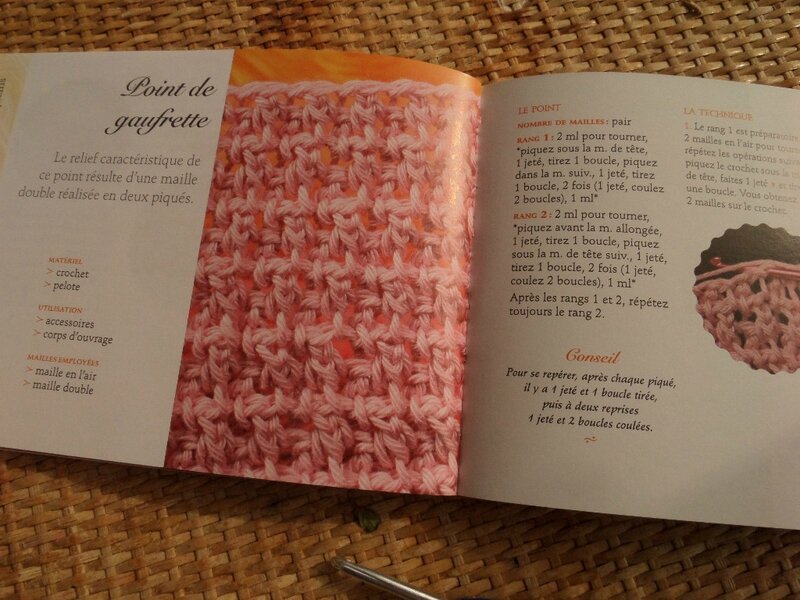 Point de
gaufrette
Le relief caractéristique de
ce point résulte d'une maille
double réalisée en deux piqués.
MATÉRIEL
> crochet
> pelote
UTILISATION
> accessoires
> corps d'ouvrage
MAILLES EMPLOYÉES
> maille en l'air
> maille double
LE POINT
NOMBRE DE MAILLES : pair
RANG 1 : 2 ml pour tourner,
*piquez sous la m. de tête,
1 jeté, tirez 1 boucle, piquez
dans la m. suiv., 1 jeté, tirez
1 boucle, 2 fois (1 jeté, coulez
2 boucles), 1 ml*
RANG 2 : 2 ml pour tourner,
*piquez avant la m. allongée,
1 jeté, tirez 1 boucle, piquez
sous la m. de tête suiv., 1 jeté,
tirez 1 boucle, 2 fois (1 jeté,
coulez 2 boucles), 1 ml*
Après les rangs 1 et 2, répétez
toujours le rang 2.
Conseil
Pour se repérer, après chaque piqué,
il y a 1 jeté et 1 boucle tirée,
puis à deux reprises
1 jeté et 2 boucles coulées.
LA TECHNIQUE
1. Le rang 1 est préparatoire
2 mailles en l'air pour tourn
répétez les opérations suiv
piquez le crochet sous la
de tête, faites 1 jeté et tir
une boucle. Vous obtenez
2 mailles sur le crochet.